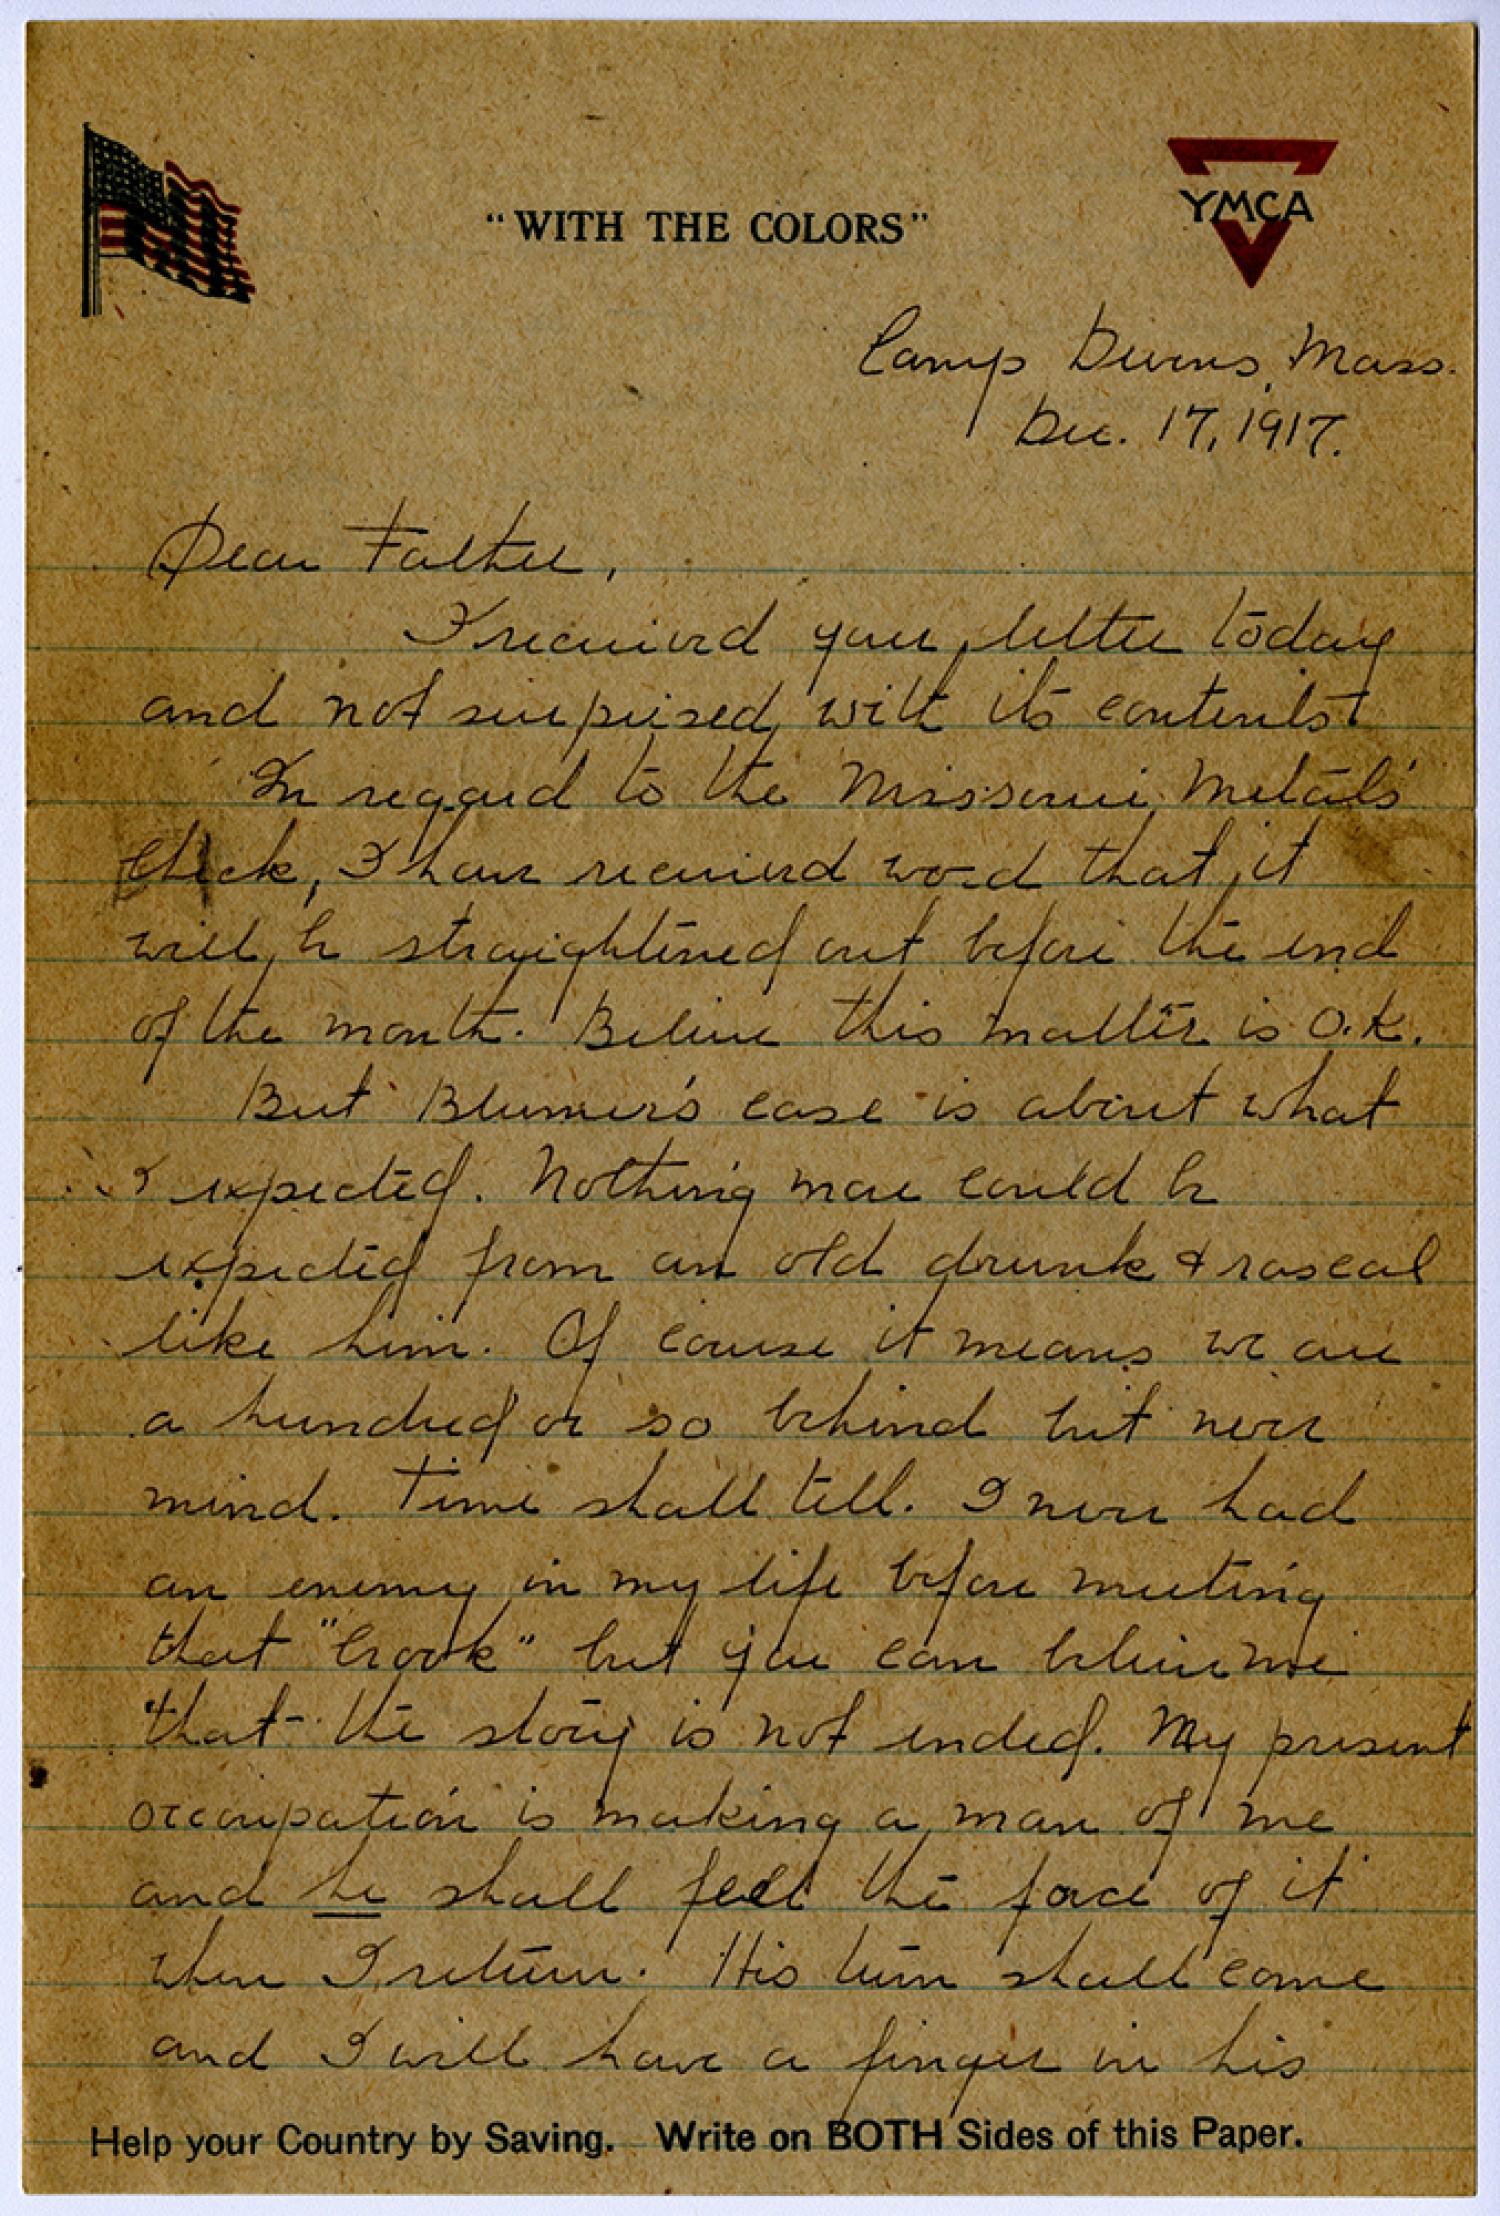 "WITH THE COLORS"
YMCA
Camp Devens, Mass.
Dec. 17, 1917.
Dear Father,
I received your letter today
and not surprised with its contents.
In regard to the Missouri Metals'
check, I have received word that it
will be straightened out before the end
of the month. Believe this matter is O.K.
But Blumer's case is about what
I expected. Nothing more could be
expected from an old drunk & rascal
like him. Of course it means we are
a hundred or so behind but never
mind. Time shall tell. I never had
an enemy in my life before meeting
that "Crook" but you can believe me
that the story is not ended. My present
occupation is making a man of me
and he shall feel the force of it
when I return. His turn shall come
and I will have a finger in his
Help your Country by Saving. Write on BOTH Sides of this Paper.